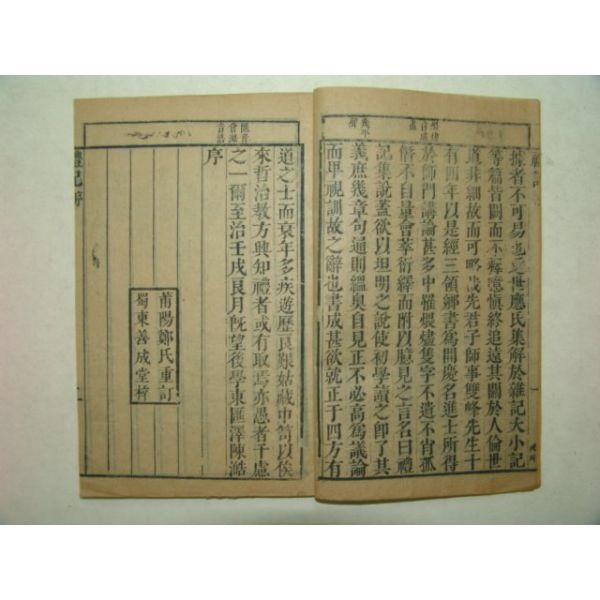 據者不可易也近世應氏集解於雜記大小記
等篇皆闕而不釋噫愼終追遠其關於人倫世
道非細故而可略哉先君子師事雙峰先生十
有四年以是經三領鄉書爲開慶名進士所得
於師門講論甚多中罹煨燼隻字不遺不肖孤
僭不自量會萃衍繹而附以臆見之言名曰禮
記集說蓋欲以坦明之說使初學讀之卽了其
義庶幾章句通則縕奧自見正不必高爲議論
而卑視訓故之辭也書成甚欲就正于四方有
幾平聲
道之士而衰年多疾遊歷良艱姑藏巾笥以俟
來哲治教方興知禮者或有取焉亦愚者千慮
之一爾至治壬戌良月旣望後學東匯澤陳澔
序
莆陽鄭氏重訂
蜀東善成堂梓
禮記序